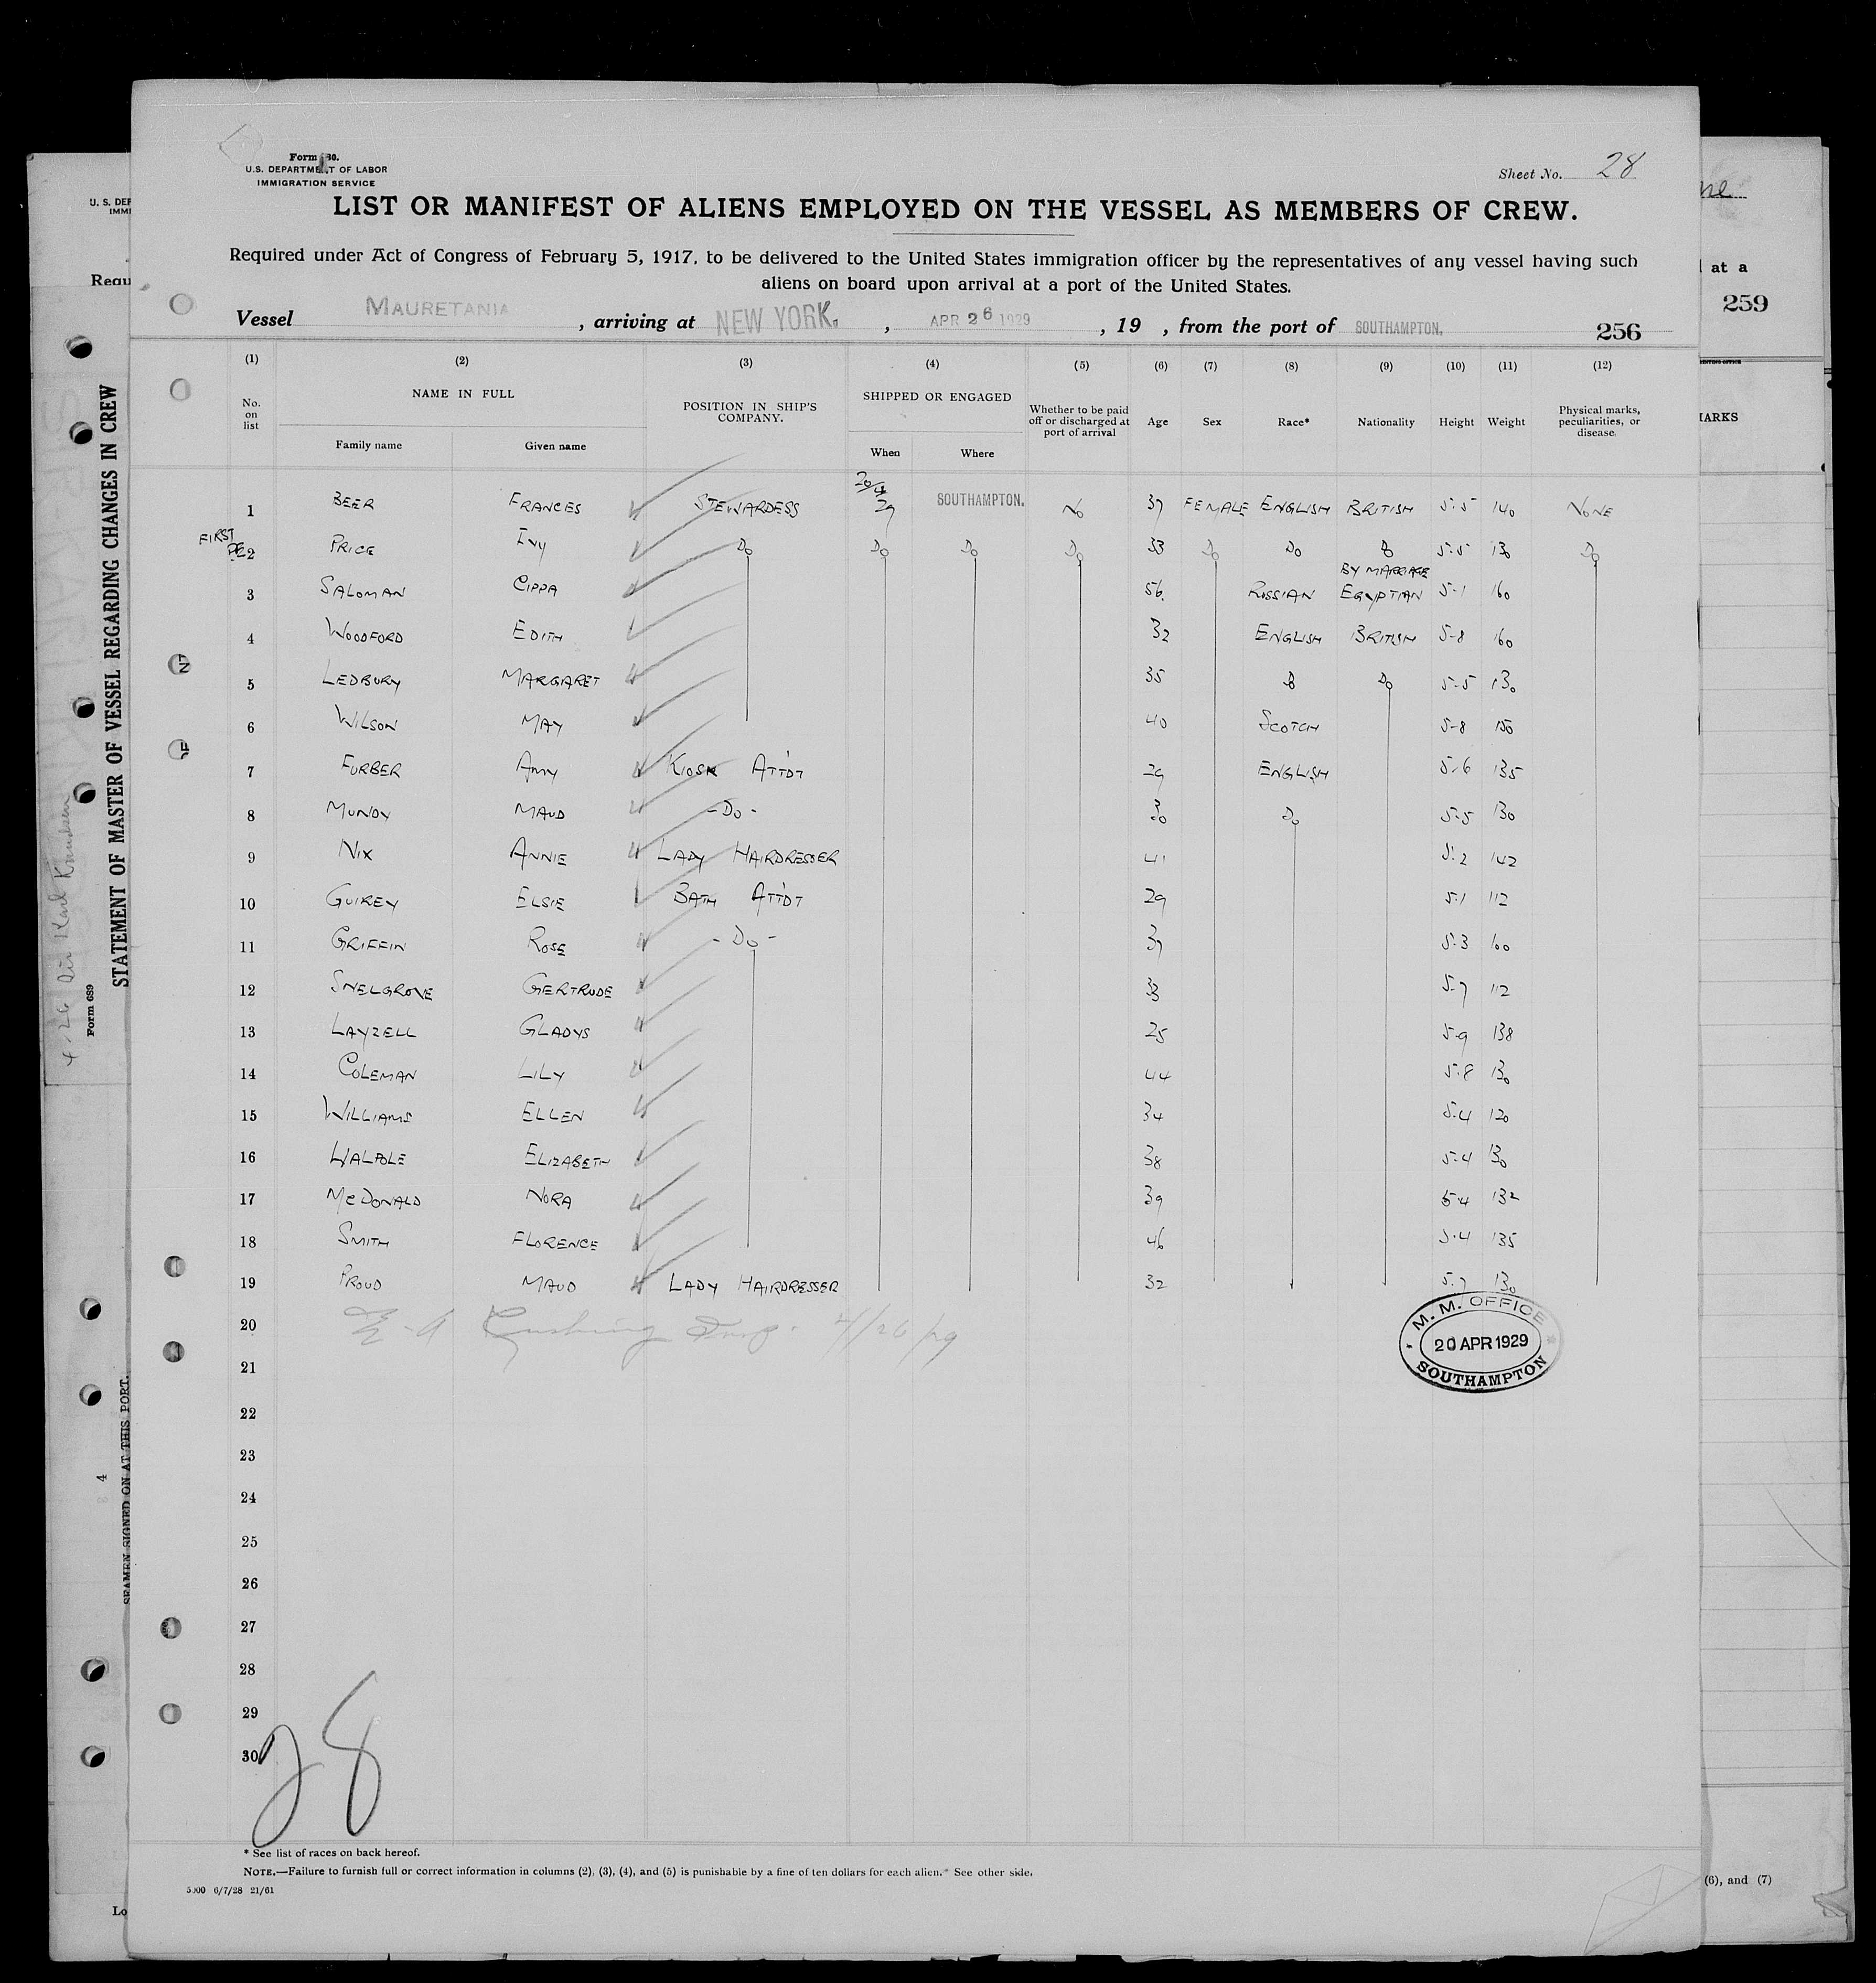 Form 680.
U.S. DEPARTMENT OF LABOR
IMMIGRATION SERVICE
Sheet No. 28
LIST OR MANIFEST OF ALIENS EMPLOYED ON THE VESSEL AS MEMBERS OF CREW.
Required under Act of Congress of February 5, 1917, to be delivered to the United States immigration officer by the representatives of any vessel having such
aliens on board upon arrival at a port of the United States.
Vessel MAURETANIA , arriving at NEW YORK. , APR 26 1929 , 19 , from the port of SOUTHAMPTON. 256
(1) (2) (3) (4) (5) (6) (7) (8) (9) (10) (11) (12)
No. on list NAME IN FULL Family name Given name POSITION IN SHIP'S COMPANY. SHIPPED OR ENGAGED When Where Whether to be paid off or discharged at port of arrival Age Sex Race* Nationality Height Weight Physical marks, peculiarities, or disease.
1 BEER FRANCES STEWARDESS 20/4/29 SOUTHAMPTON. No 37 FEMALE ENGLISH BRITISH 5-5 140 NONE
FIRST
2 PRICE IVY Do Do Do Do 33 Do Do Do 5-5 130 Do
BY MARRIAGE
3 SALOMAN CIPPA 56 RUSSIAN EGYPTIAN 5-1 160
4 WOODFORD EDITH 32 ENGLISH BRITISH 5-8 160
5 LEDBURY MARGARET 35 Do Do 5-5 130
6 WILSON MAY 40 SCOTCH 5-8 150
7 FURBER AMY KIOSK ATTDT 29 ENGLISH 5-6 135
8 MUNDY MAUD -Do- 30 Do 5-5 130
9 NIX ANNIE LADY HAIRDRESSER 41 5-2 142
10 GUIREY ELSIE BATH ATTDT 29 5-1 112
11 GRIFFIN ROSE -Do- 37 5-3 100
12 SNELGROVE GERTRUDE 33 5-7 112
13 LAYZELL GLADYS 25 5-9 138
14 COLEMAN LILY 44 5-8 130
15 WILLIAMS ELLEN 34 5-4 120
16 WALPOLE ELIZABETH 38 5-4 130
17 McDONALD NORA 39 5-4 132
18 SMITH FLORENCE 46 5-4 135
19 PROUD MAUD LADY HAIRDRESSER 32 5-7 130
20 Cushing Insp. 4/26/29
M. M. OFFICE
20 APR 1929
SOUTHAMPTON
21
22
23
24
25
26
27
28
29
30
28
* See list of races on back hereof.
NOTE.—Failure to furnish full or correct information in columns (2), (3), (4), and (5) is punishable by a fine of ten dollars for each alien.* See other side.
5000 6/7/28 21/61
U. S. DEP
IMMI
Requ
STATEMENT OF MASTER OF VESSEL REGARDING CHANGES IN CREW
Form 689
SEAMEN SIGNED ON AT THIS PORT.
4
Lo
at a
259
MARKS
(6), and (7)